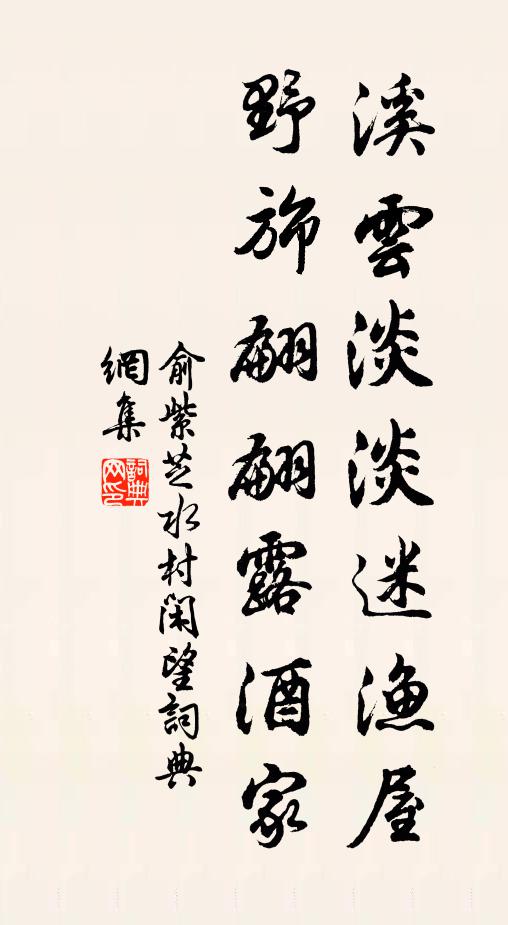 溪雲淡淡迷漁屋
野旆翩翩露酒家
俞紫芝水村閑望詞典
網集
詞典網印